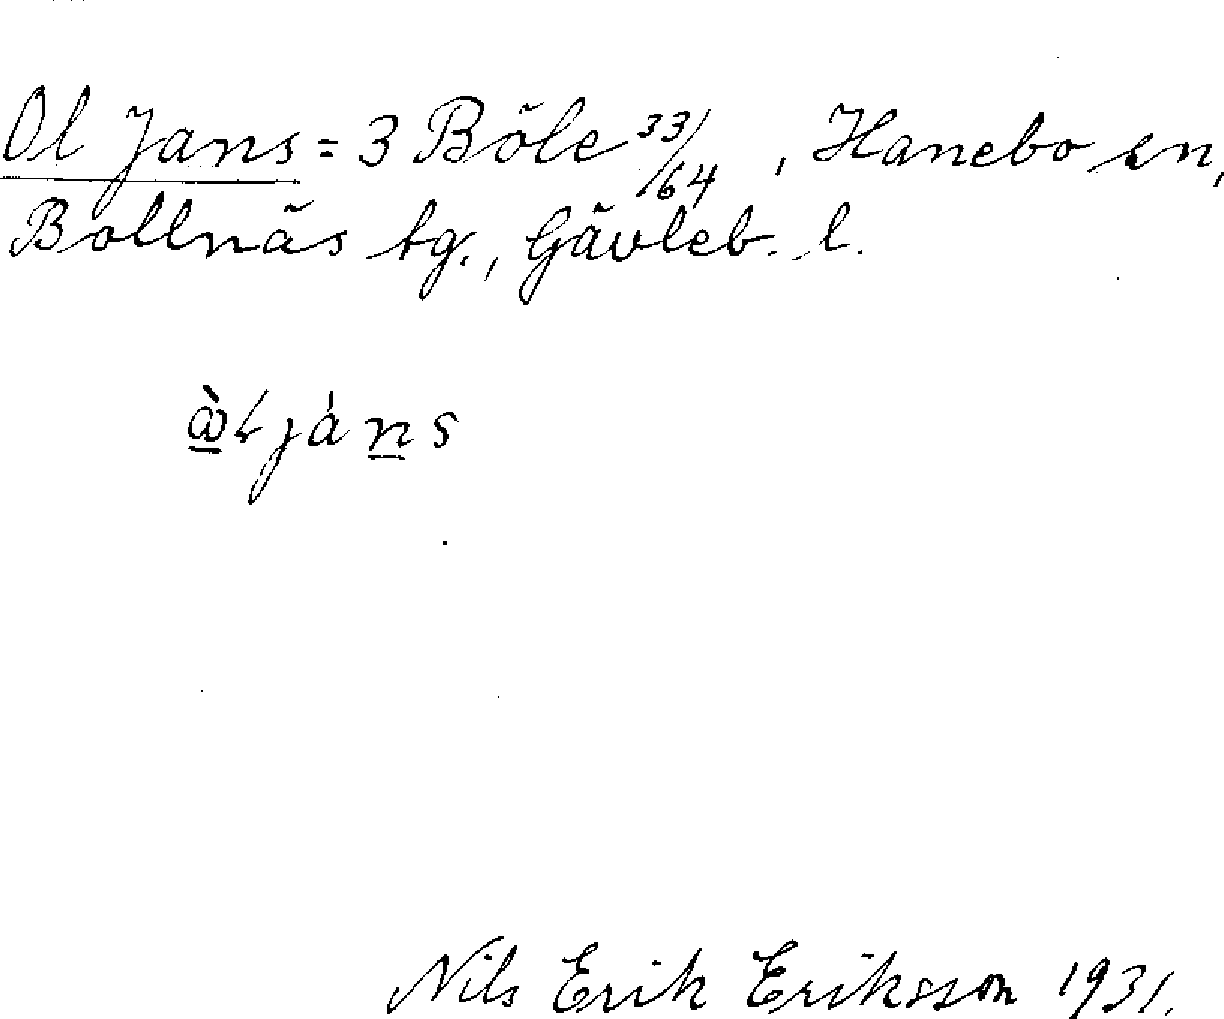 Ol Jans = 3 Böle 33/64, Hanebo sn,
Bollnäs tg., Gävleb. l.
Nils Erik Eriksson 1931.